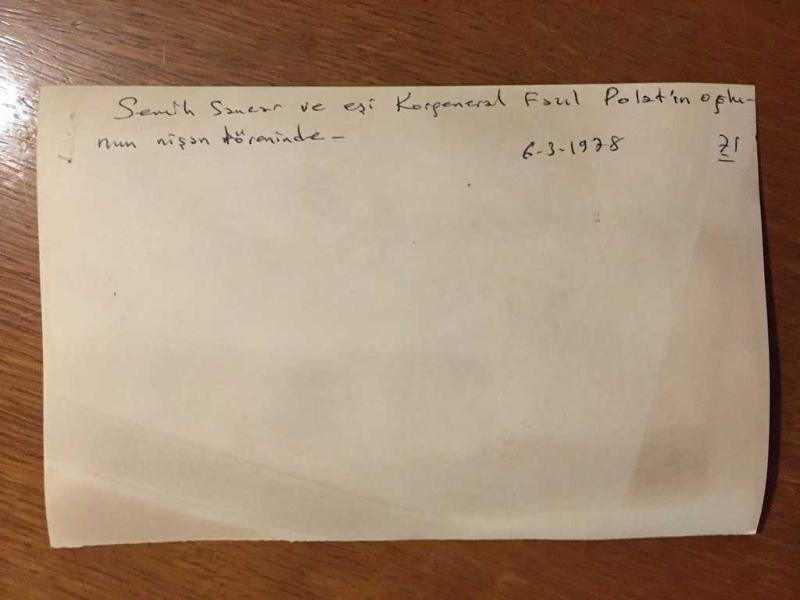 Semih Sancar ve eşi Korgeneral Fazıl Polat'ın oğlu-
nun nişan töreninde-
6-3-1978